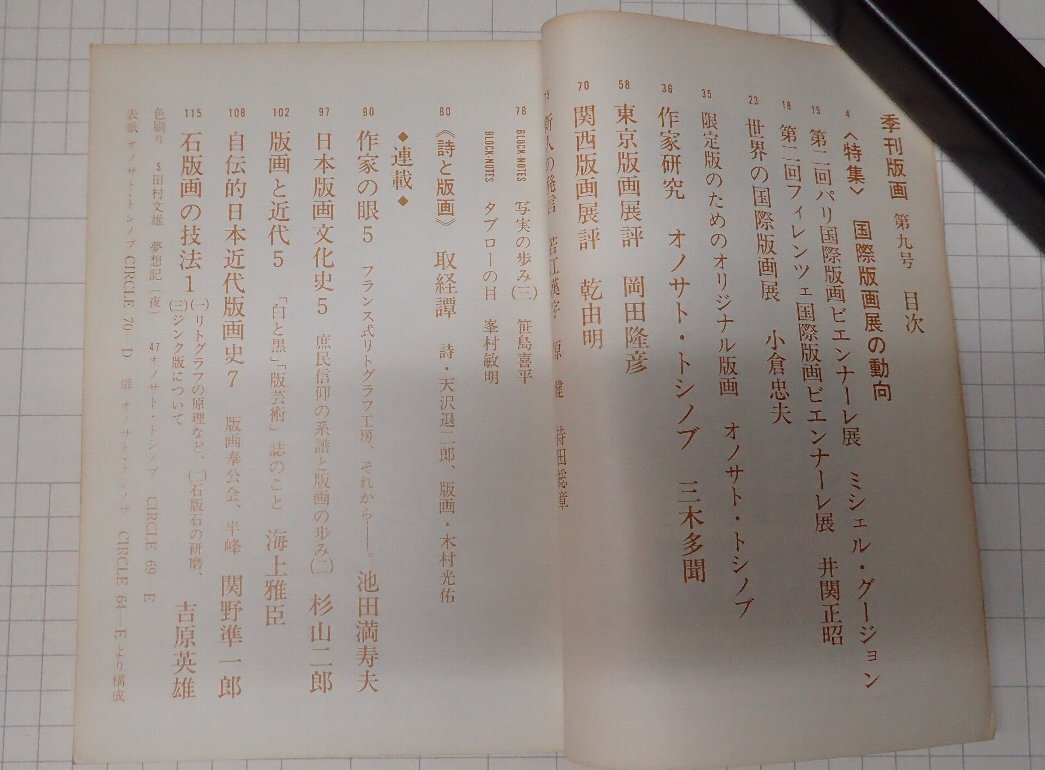 季刊版画 第九号 目次
4 〈特集〉 国際版画展の動向
15 第二回パリ国際版画ビエンナーレ展 ミシェル・グージョン
18 第二回フィレンツェ国際版画ビエンナーレ展 井関正昭
23 世界の国際版画展 小倉忠夫
35 限定版のためのオリジナル版画 オノサト・トシノブ
36 作家研究 オノサト・トシノブ 三木多聞
58 東京版画展評 岡田隆彦
70 関西版画展評 乾由明
75 新人の発言 若江漢字 原 健 持田総章
78 BLOCK-NOTES 写実の歩み(三) 笹島喜平
BLOCK-NOTES タブローの目 峯村敏明
80 《詩と版画》 取経譚 詩・天沢退二郎、版画・木村光佑
◆連載◆
90 作家の眼5 フランス式リトグラフ工房、それから――。 池田満寿夫
97 日本版画文化史5 庶民信仰の系譜と版画の歩み(二) 杉山二郎
102 版画と近代5 「白と黒」「版芸術」誌のこと 海上雅臣
108 自伝的日本近代版画史7 版画奉公会、半峰 関野準一郎
115 石版画の技法1 (一)リトグラフの原理など、(二)石版石の研磨、
(三)ジンク版について 吉原英雄
色刷り 5田村文雄 夢想記(夜) 47オノサト・トシノブ CIRCLE 69―E
表紙 オノサト・トシノブ CIRCLE 70―D 扉 オノサト・トシノブ CIRCLE 64―Eより構成